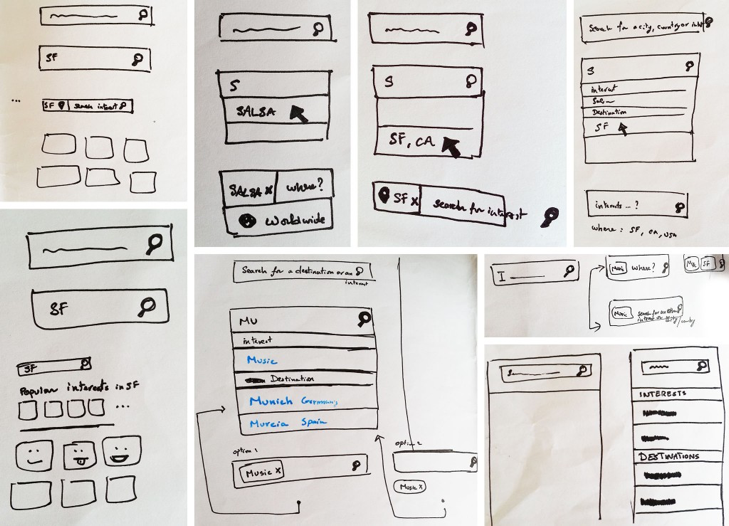 SF
SF
search interest
S
SALSA
SALSA x
where?
Worldwide
S
SF, CA
SF x
search for interest
Search for a city, country or
S
interest
Destination
SF
interests ...?
where : SF, CA, USA
SF
SF
Popular interests in SF
...
Search for a destination or an
interest
MU
interest
Music
Destination
Munich Germany
Murcia Spain
option 1
Music x
option 2
Music x
I
Music
where?
Mu
SF
Music
Search for an
interest
S
INTERESTS
DESTINATIONS